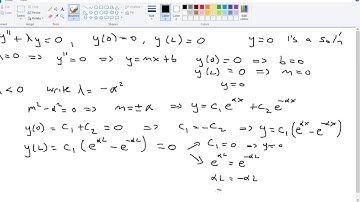 y'' + λy = 0, y(0) = 0, y(L) = 0 y = 0 is a sol'n
λ = 0 => y'' = 0 => y = mx + b y(0) = 0 => b = 0
y(L) = 0 => m = 0
y = 0
λ < 0 write λ = -α²
m² - α² = 0 => m = ±α => y = c₁e^{αx} + c₂e^{-αx}
y(0) = c₁ + c₂ = 0 => c₁ = -c₂ => y = c₁(e^{αx} - e^{-αx})
y(L) = c₁(e^{αL} - e^{-αL}) = 0 c₁ = 0 => y = 0
e^{αL} = e^{-αL}
αL = -αL